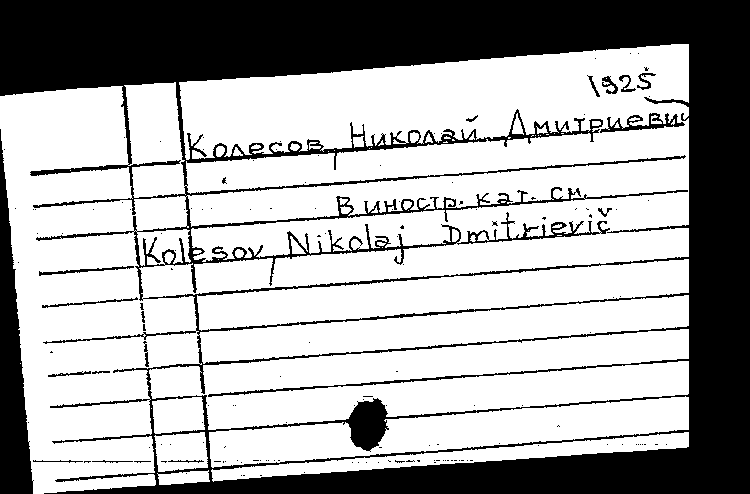 1925
Колесов, Николай Дмитриевич
В иностр. кат. см.
Kolesov, Nikolaj Dmitrievič